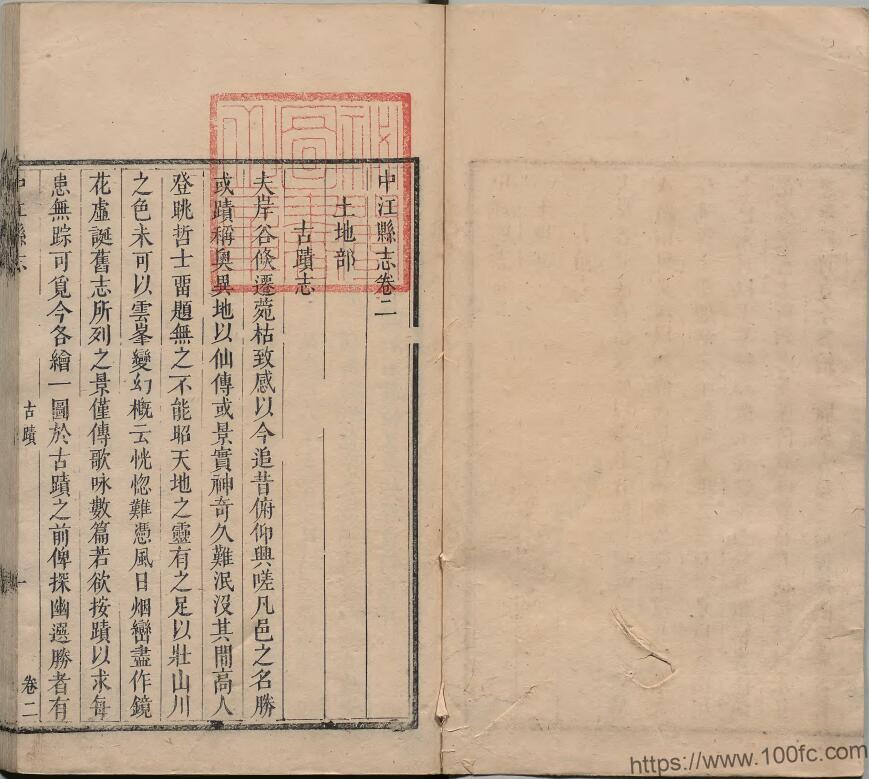 中江縣志卷二
土地部
古蹟志
夫岸谷倏遷菀枯致感以今追昔俯仰興嗟凡邑之名勝
或蹟稱奧異地以仙傳或景實神奇久難泯沒其間高人
登眺哲士畱題無之不能昭天地之靈有之足以壯山川
之色未可以雲峯變幻概云恍惚難憑風日烟巒盡作鏡
花虛誕舊志所列之景僅傳歌咏數篇若欲按蹟以求每
患無踪可覓今各繪一圖於古蹟之前俾探幽選勝者有
中江縣志
古蹟
一
卷二
https://www.100fc.com